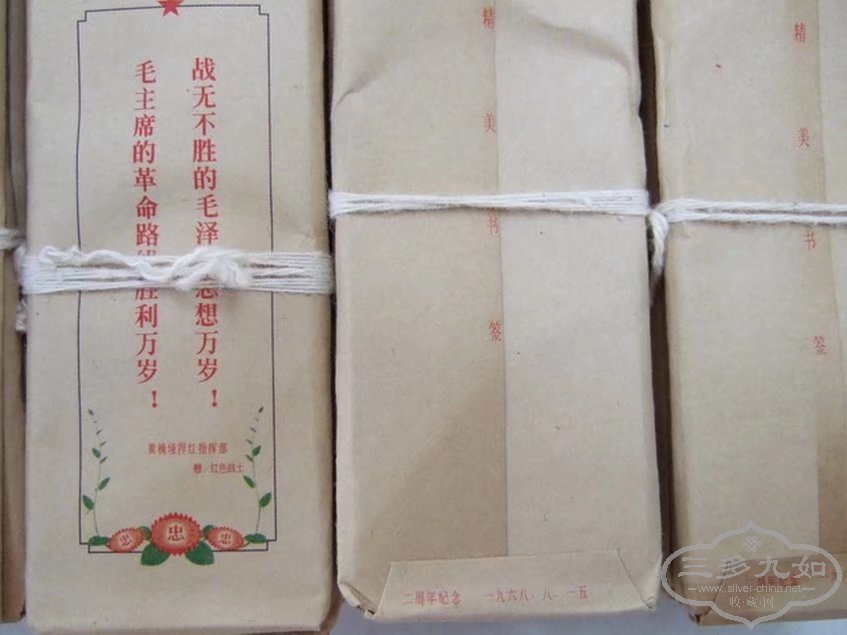 战无不胜的毛泽思想万岁！
毛主席的革命路线胜利万岁！
黄桷垭捍红指挥部
赠：红色战士
忠 忠 忠
精美书签
二周年纪念 一九六八·八·一五
精美书签
三多九如
www.silver-china.net
收·藏·网